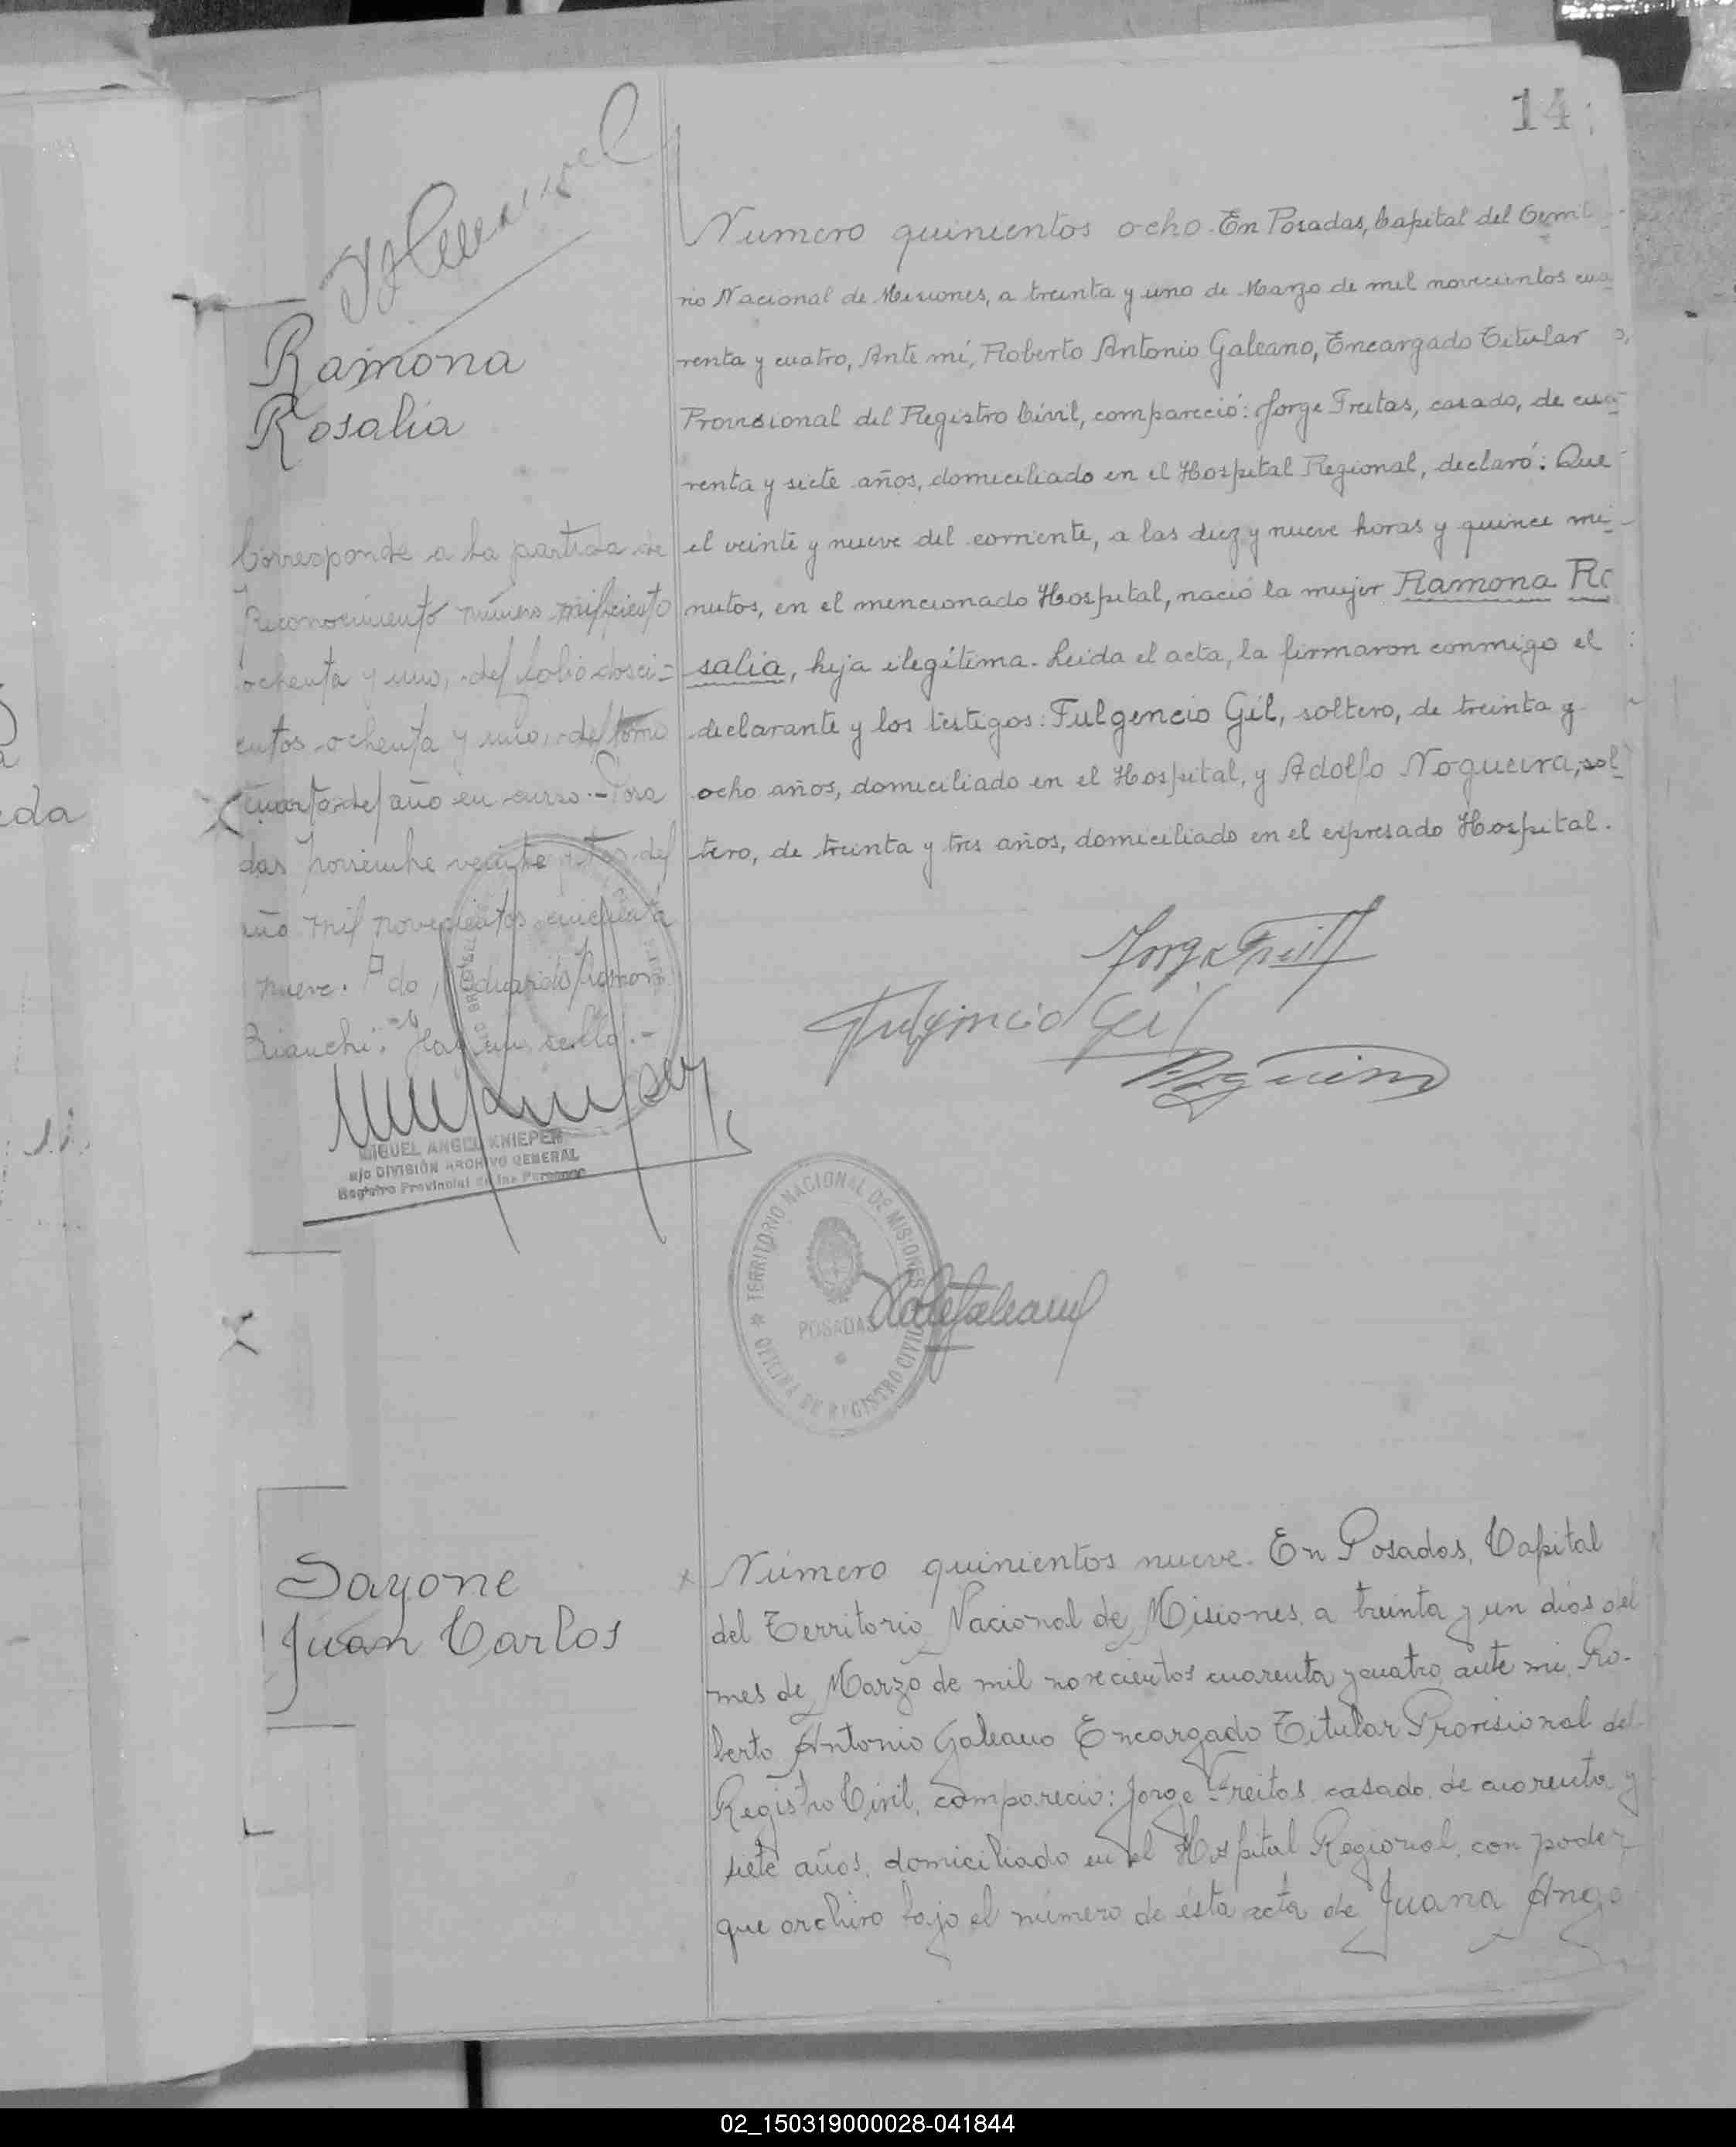 14
Numero quinientos ocho. En Posadas, Capital del Territo-
Ramona
Rosalia
rio Nacional de Misiones, a treinta y uno de Marzo de mil novecientos cua
renta y cuatro, Ante mí, Roberto Antonio Galeano, Encargado Titular
Provisional del Registro Civil, compareció: Jorge Freitas, casado, de cua-
renta y siete años, domiciliado en el Hospital Regional, declaró: Que
el veinte y nueve del corriente, a las diez y nueve horas y quince mi-
nutos, en el mencionado Hospital, nació la mujer Ramona Ro
salia, hija ilegítima. Leida el acta, la firmaron conmigo el
declarante y los testigos: Fulgencio Gil, soltero, de treinta y
ocho años, domiciliado en el Hospital, y Adolfo Nogueira, sol
tero, de treinta y tres años, domiciliado en el expresado Hospital.
Corresponde a la partida de
Reconocimiento número mil ciento
ochenta y uno, del folio dosci=
entos ochenta y uno, del tomo
cuarto del año en curso.- Posa
das Noviembre veinte del
año mil novecientos cincuenta
nueve. Fdo, Eduardo Ramon
Bianchi. Hay un sello.-
Jorge Freitas
Fulgencio Gil
Nogueira
MIGUEL ANGEL KNIEPER
a/c DIVISIÓN ARCHIVO GENERAL
Registro Provincial de las Personas
TERRITORIO NACIONAL DE MISIONES
POSADAS
OFICINA DE REGISTRO CIVIL
Sayone
Juan Carlos
Número quinientos nueve. En Posadas, Capital
del Territorio Nacional de Misiones, a treinta y un dias del
mes de Marzo de mil novecientos cuarenta y cuatro, ante mi, Ro-
berto Antonio Galeano Encargado Titular Provisional del
Registro Civil, compareció: Jorge Freitas, casado, de cuarenta y
siete años, domiciliado en el Hospital Regional, con poder
que archivo bajo el número de ésta acta de Juana Ange
eda
02_150319000028-041844